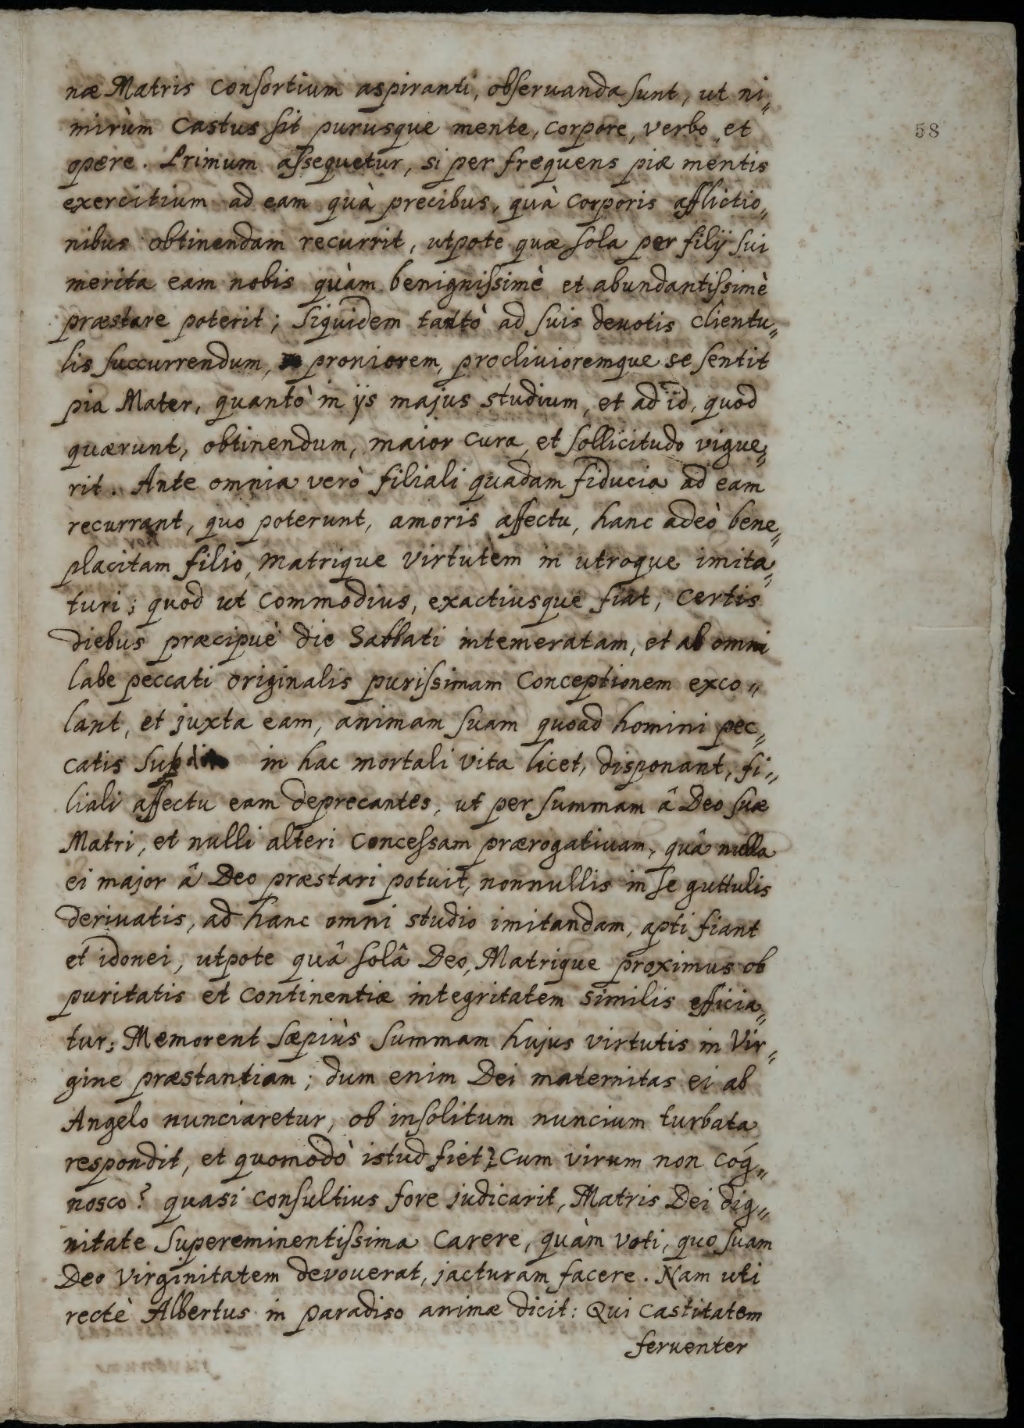 næ Matris Consortium aspiranti, observanda sunt, ut ni„
58
mirùm Castus sit purusque mente, corpore, verbo et
opere. Primum assequetur, si per frequens piæ mentis
exercitium ad eam quà precibus, quà Corporis afflictio„
nibus obtinendam recurrit, utpote quæ sola per filij sui
merita eam nobis quàm benignissimè et abundantissimè
præstare poterit; siquidem tantò ad suis devotis clientu„
lis succurrendum, proniorem, proclivioremque se sentit
pia Mater, quantò in ijs majus studium, et ad id, quod
quærunt, obtinendum, maior cura, et sollicitudo vigue„
rit. Ante omnia verò filiali quadam fiducia ad eam
recurrant, quo poterunt, amoris affectu, hanc adeò bene„
placitam filio, Matrique Virtutem in utroque imita„
turi; quod ut Commodius, exactiusque fiat, Certis
diebus præcipuè die Sabbati intemeratam, et ab omni
labe peccati originalis purissimam Conceptionem exco„
lant, et juxta eam, animam suam quoad homini pec„
catis in hac mortali vita licet, disponant, fi„
liali affectu eam deprecantes, ut per summam â Deo suæ
Matri, et nulli alteri Concessam prærogativam, quâ nulla
ei major â Deo præstari potuit, nonnullis in se guttulis
derivatis, ad hanc omni studio imitandam, apti fiant
et idonei, utpote quâ solâ Deo, Matrique proximus ob
puritatis et Continentiæ integritatem similis efficia„
tur; Memorent sæpiùs summam hujus virtutis in Vir„
gine præstantiam; dum enim Dei maternitas ei ab
Angelo nunciaretur, ob insolitum nuncium turbata
respondit, et quomodò istud fiet? Cum virum non cog„
nosco? quasi consultius fore judicarit, Matris Dei dig„
nitate supereminentissima Carere, quàm voti, quo suam
Deo Virginitatem devoverat, jacturam facere. Nam uti
rectè Albertus in paradiso animæ dicit: Qui Castitatem
ferventer